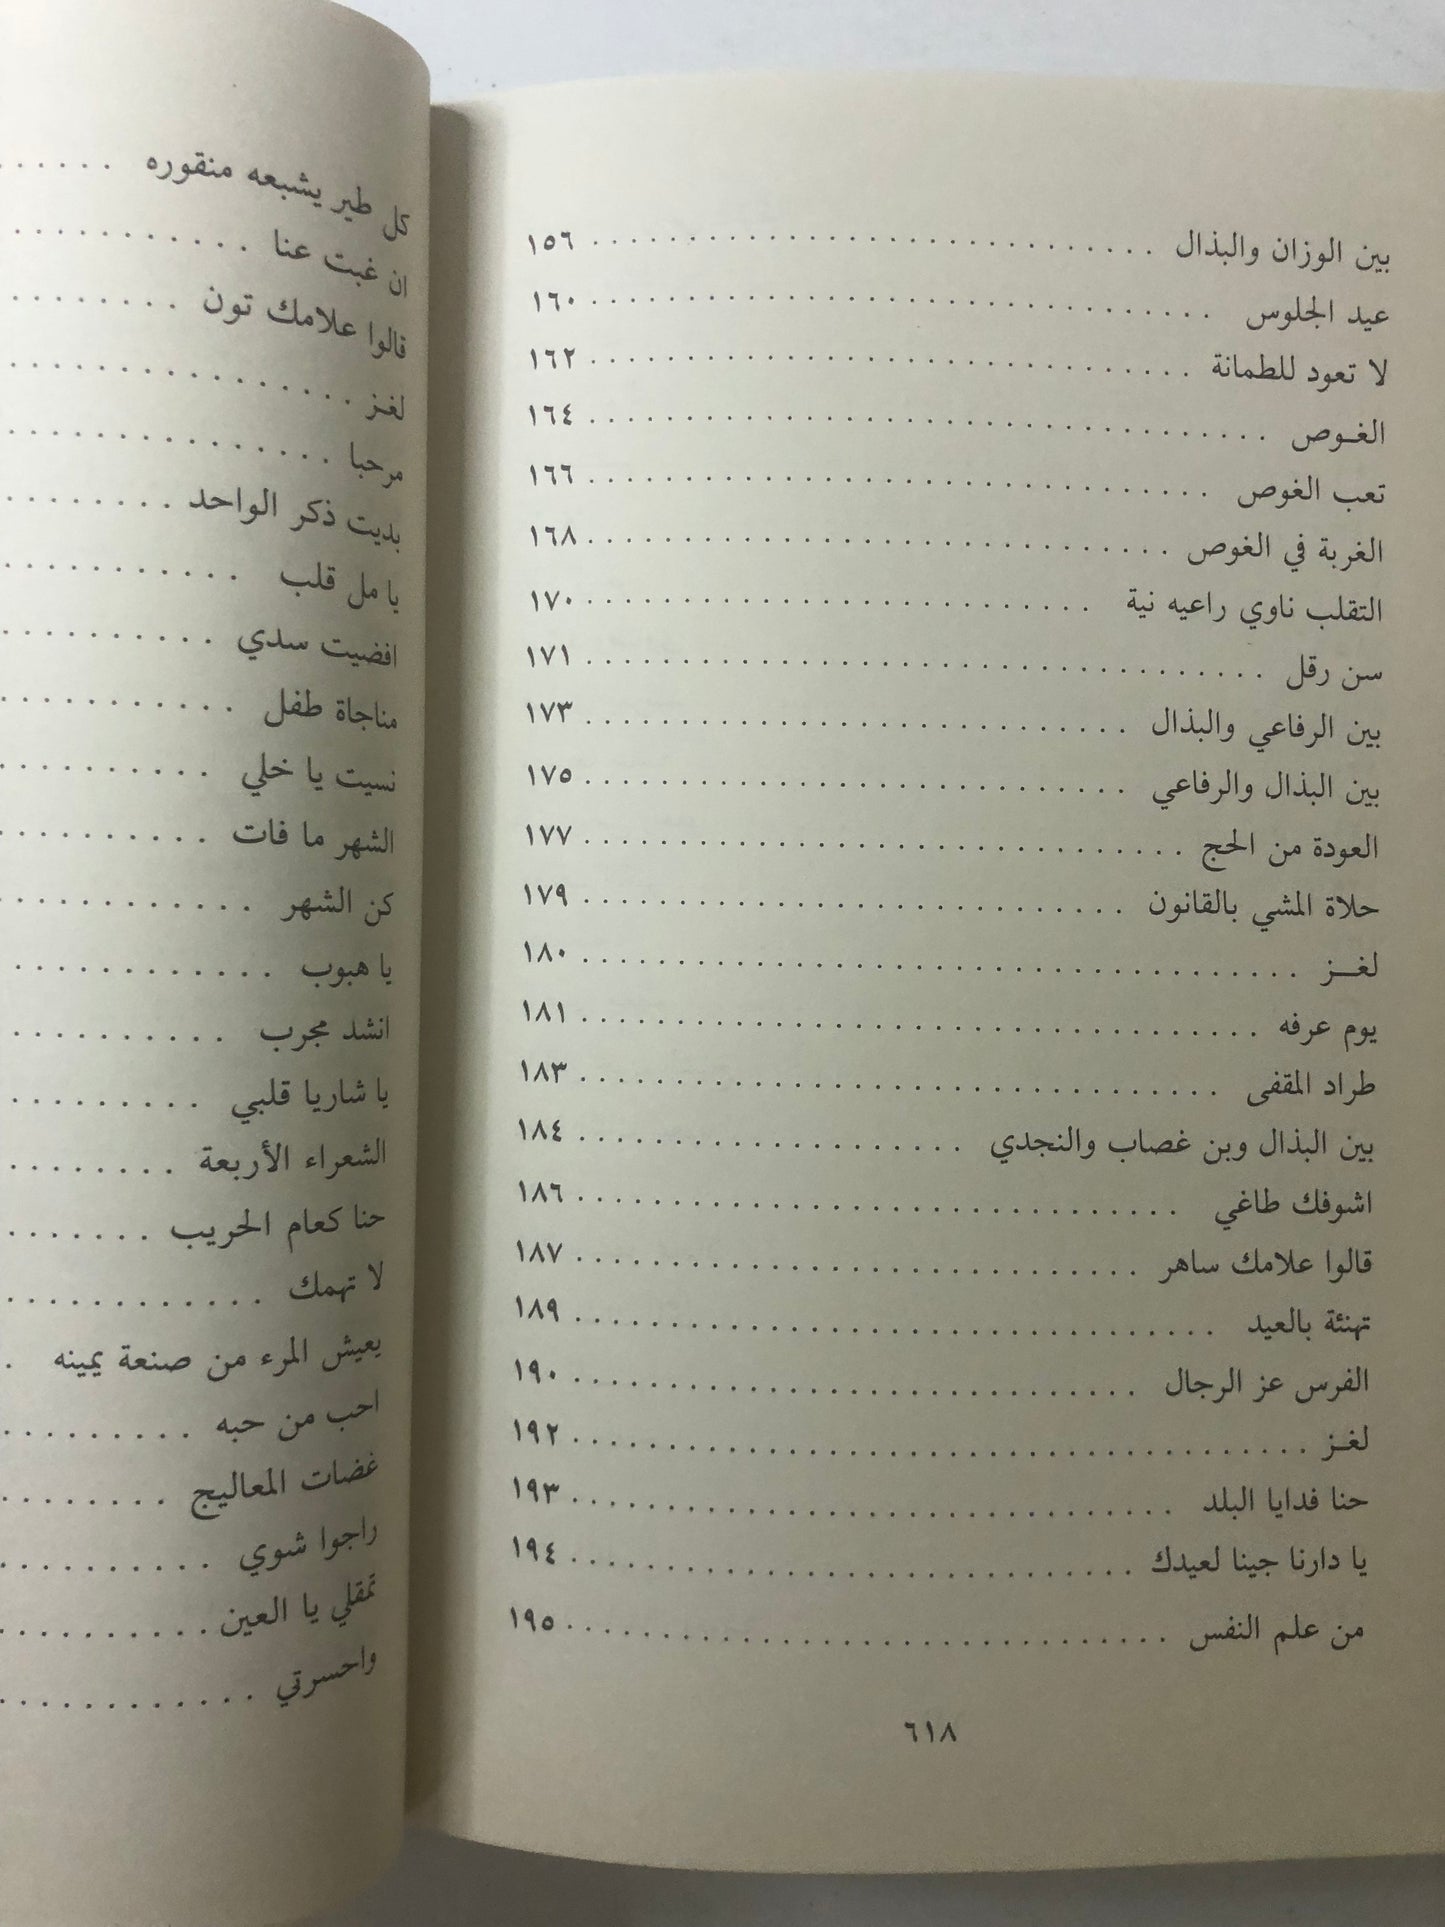 بين الوزان والبذال . . . . . . . . . . . . . . . . . . . . . . . . ١٥٦
عيد الجلوس . . . . . . . . . . . . . . . . . . . . . . . . ١٦٠
لا تعود للطمانة . . . . . . . . . . . . . . . . . . . . . . . . ١٦٢
الغـوص . . . . . . . . . . . . . . . . . . . . . . . . ١٦٤
تعب الغوص . . . . . . . . . . . . . . . . . . . . . . . . ١٦٦
الغربة في الغوص . . . . . . . . . . . . . . . . . . . . . . . . ١٦٨
التقلب ناوي راعيه نية . . . . . . . . . . . . . . . . . . . . . . ١٧٠
سن رقل . . . . . . . . . . . . . . . . . . . . . . . . ١٧١
بين الرفاعي والبذال . . . . . . . . . . . . . . . . . . . . . . . . ١٧٣
بين البذال والرفاعي . . . . . . . . . . . . . . . . . . . . . . . . ١٧٥
العودة من الحج . . . . . . . . . . . . . . . . . . . . . . . . ١٧٧
حلاة المشي بالقانون . . . . . . . . . . . . . . . . . . . . . . . . ١٧٩
لغــز . . . . . . . . . . . . . . . . . . . . . . . . ١٨٠
يوم عرفه . . . . . . . . . . . . . . . . . . . . . . . . ١٨١
طراد المقفى . . . . . . . . . . . . . . . . . . . . . . . . ١٨٣
بين البذال وبن غصاب والنجدي . . . . . . . . . . . . . . . . . ١٨٤
اشوفك طاغي . . . . . . . . . . . . . . . . . . . . . . . . ١٨٦
قالوا علامك ساهر . . . . . . . . . . . . . . . . . . . . . . . . ١٨٧
تهنئة بالعيد . . . . . . . . . . . . . . . . . . . . . . . . ١٨٩
الفرس عز الرجال . . . . . . . . . . . . . . . . . . . . . . . . ١٩٠
لغـز . . . . . . . . . . . . . . . . . . . . . . . . ١٩٢
حنا فدايا البلد . . . . . . . . . . . . . . . . . . . . . . . . ١٩٣
يا دارنا جينا لعيدك . . . . . . . . . . . . . . . . . . . . . . . . ١٩٤
من علم النفس . . . . . . . . . . . . . . . . . . . . . . . . ١٩٥
٦١٨
كل طير يشبعه منقوره . . . . . .
ان غبت عنا . . . . . . . . . . .
قالوا علامك تون . . . . . . . . .
لغـز . . . . . . . . . . . . . . .
مرحبا . . . . . . . . . . . . . .
بديت ذكر الواحد . . . . . . . .
يا مل قلب . . . . . . . . . . .
افضيت سدي . . . . . . . . . .
مناجاة طفل . . . . . . . . . . .
نسيت يا خلي . . . . . . . . . .
الشهر ما فات . . . . . . . . . .
كن الشهر . . . . . . . . . . . .
يا هبوب . . . . . . . . . . . .
انشد مجرب . . . . . . . . . .
يا شاريا قلبي . . . . . . . . .
الشعراء الأربعة . . . . . . . .
حنا كعام الحريب . . . . . . .
لا تهمك . . . . . . . . . . . .
يعيش المرء من صنعة يمينه .
احب من حبه . . . . . . . . .
غضات المعاليج . . . . . . . .
راجوا شوي . . . . . . . . . .
تمقلي يا العين . . . . . . . . .
واحسرتي . . . . . . . . . . . .